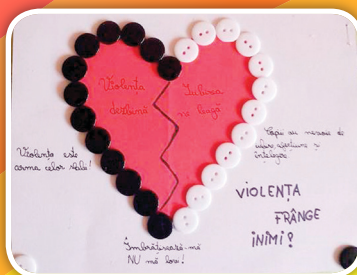 Violența
dezbină
Iubirea
ne leagă
Violența este
arma celor slabi!
Copiii au nevoie de
iubire, afecțiune și
înțelegere
VIOLENȚA
FRÂNGE
INIMI!
Îmbrățișează-mă
NU mă lovi!